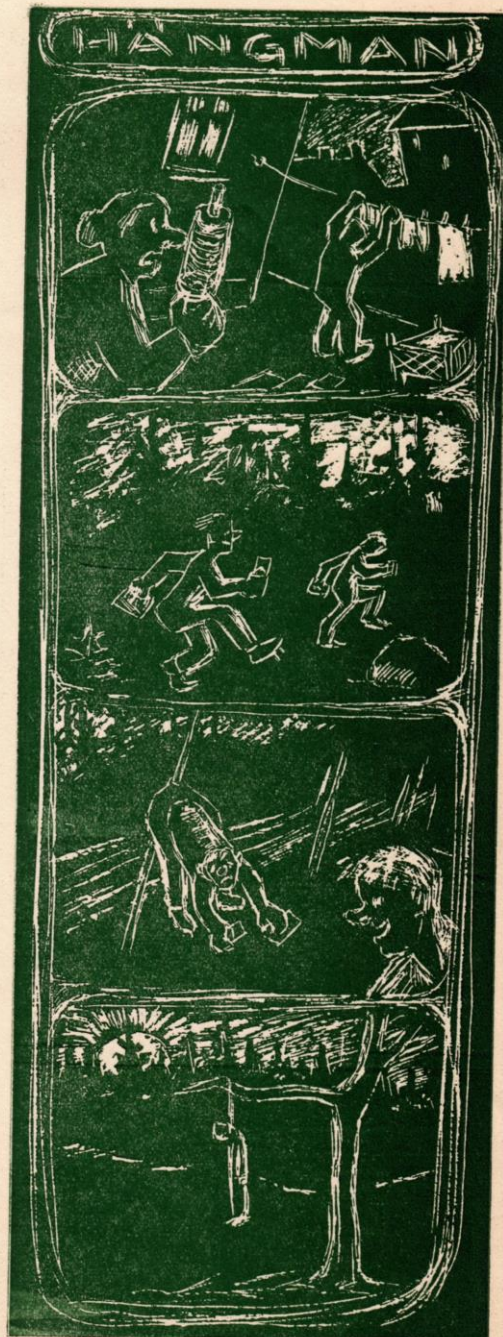 HÄNGMAN